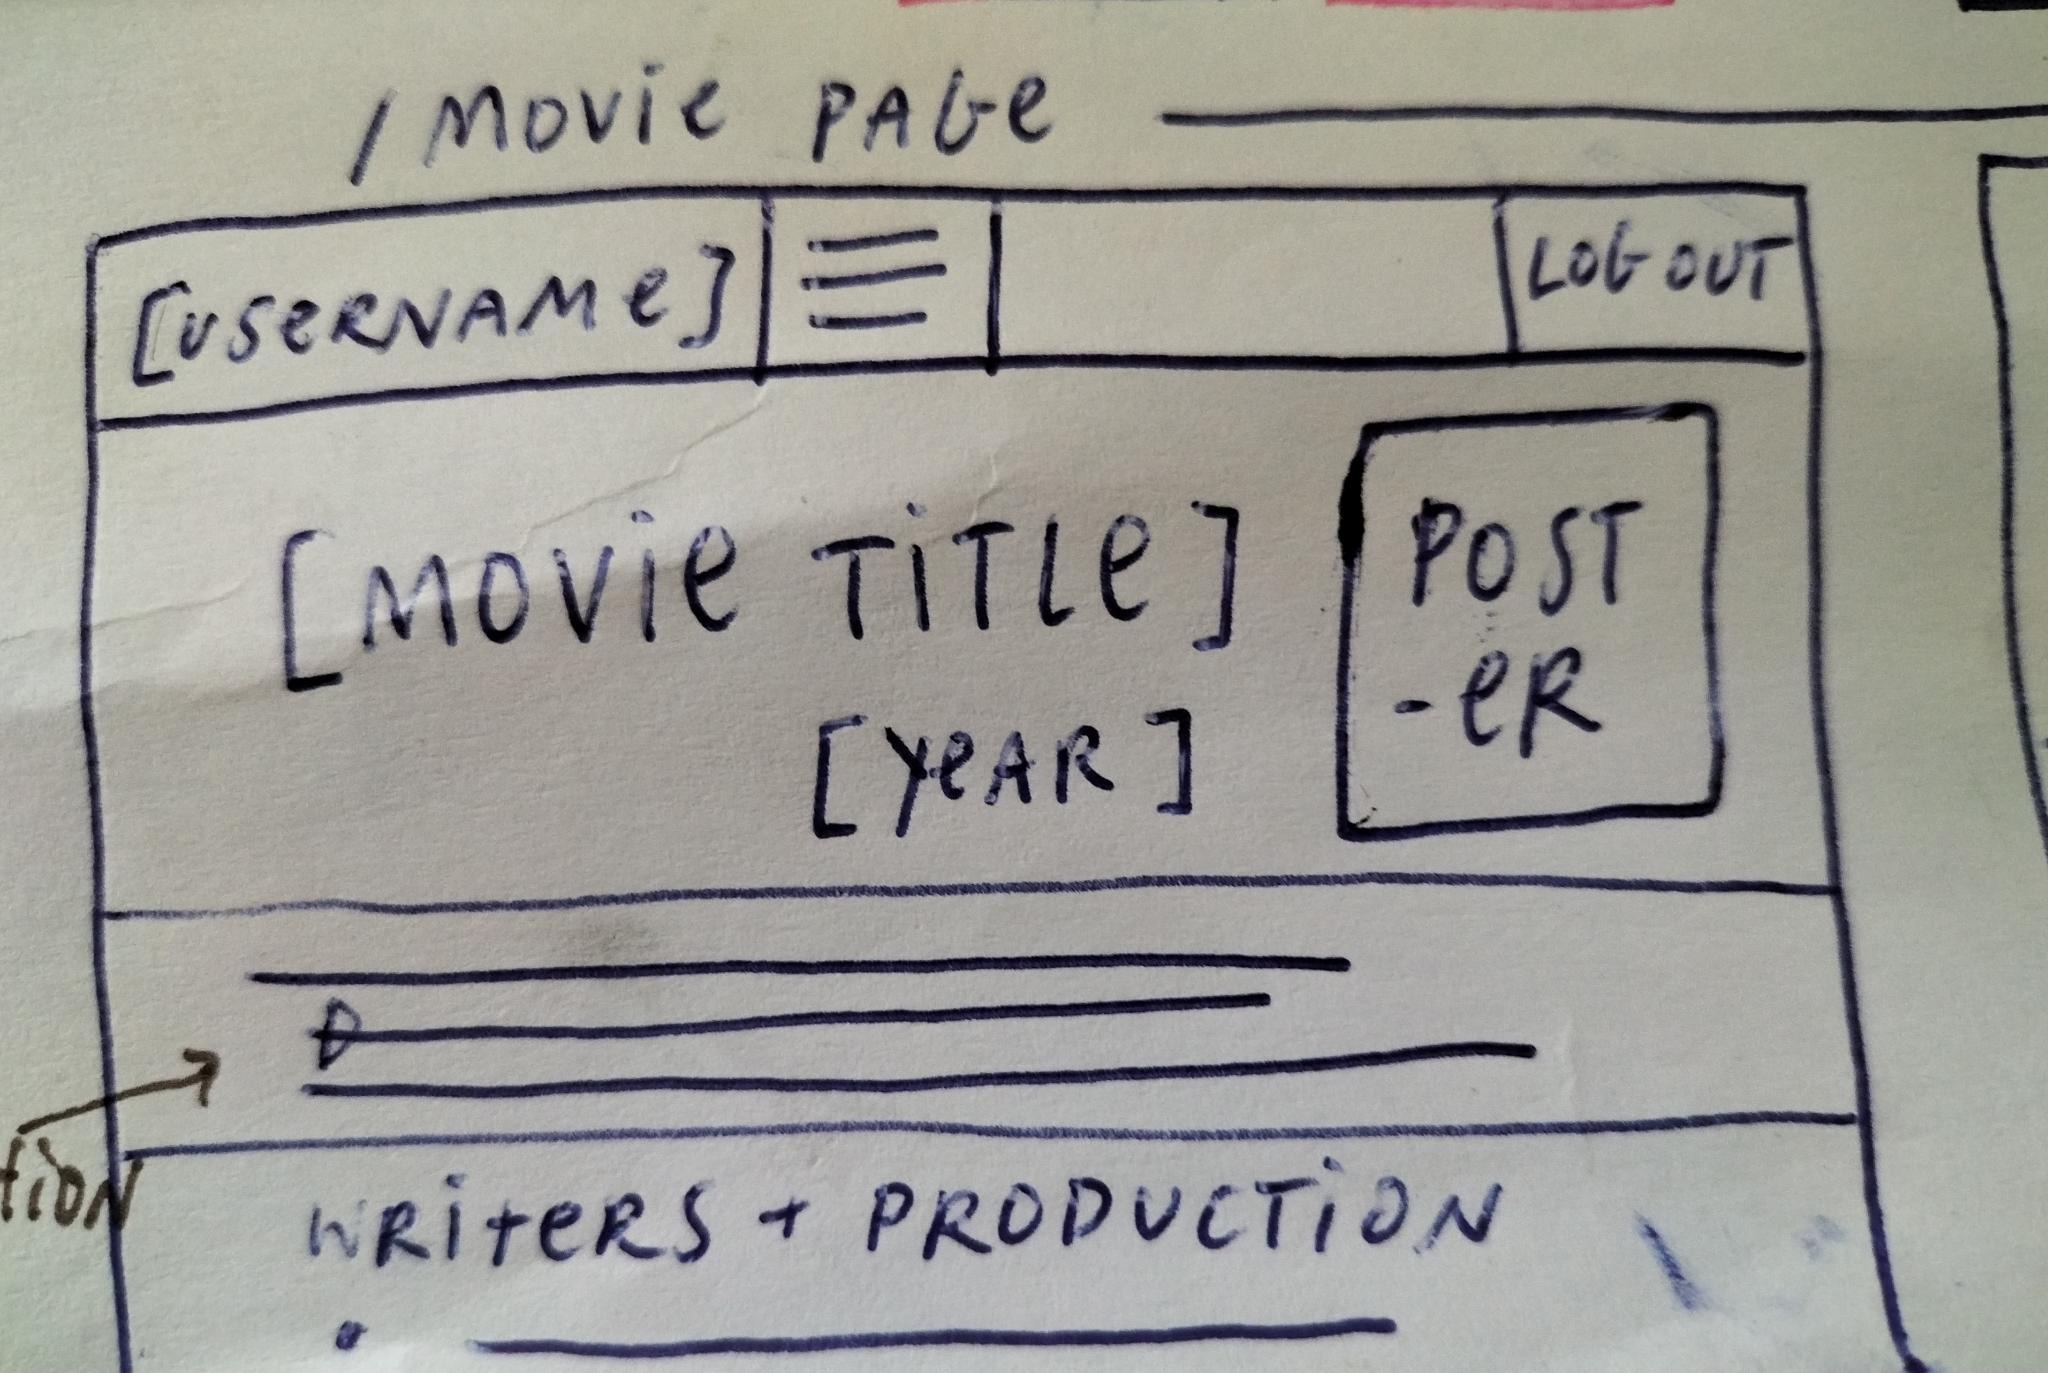 / MOVie PAGe
[USeRNAMe]
LOG OUT
[MOViE TiTLe]
[YeAR]
POST
-eR
tiON
WRiTeRS + PRODUCTiON